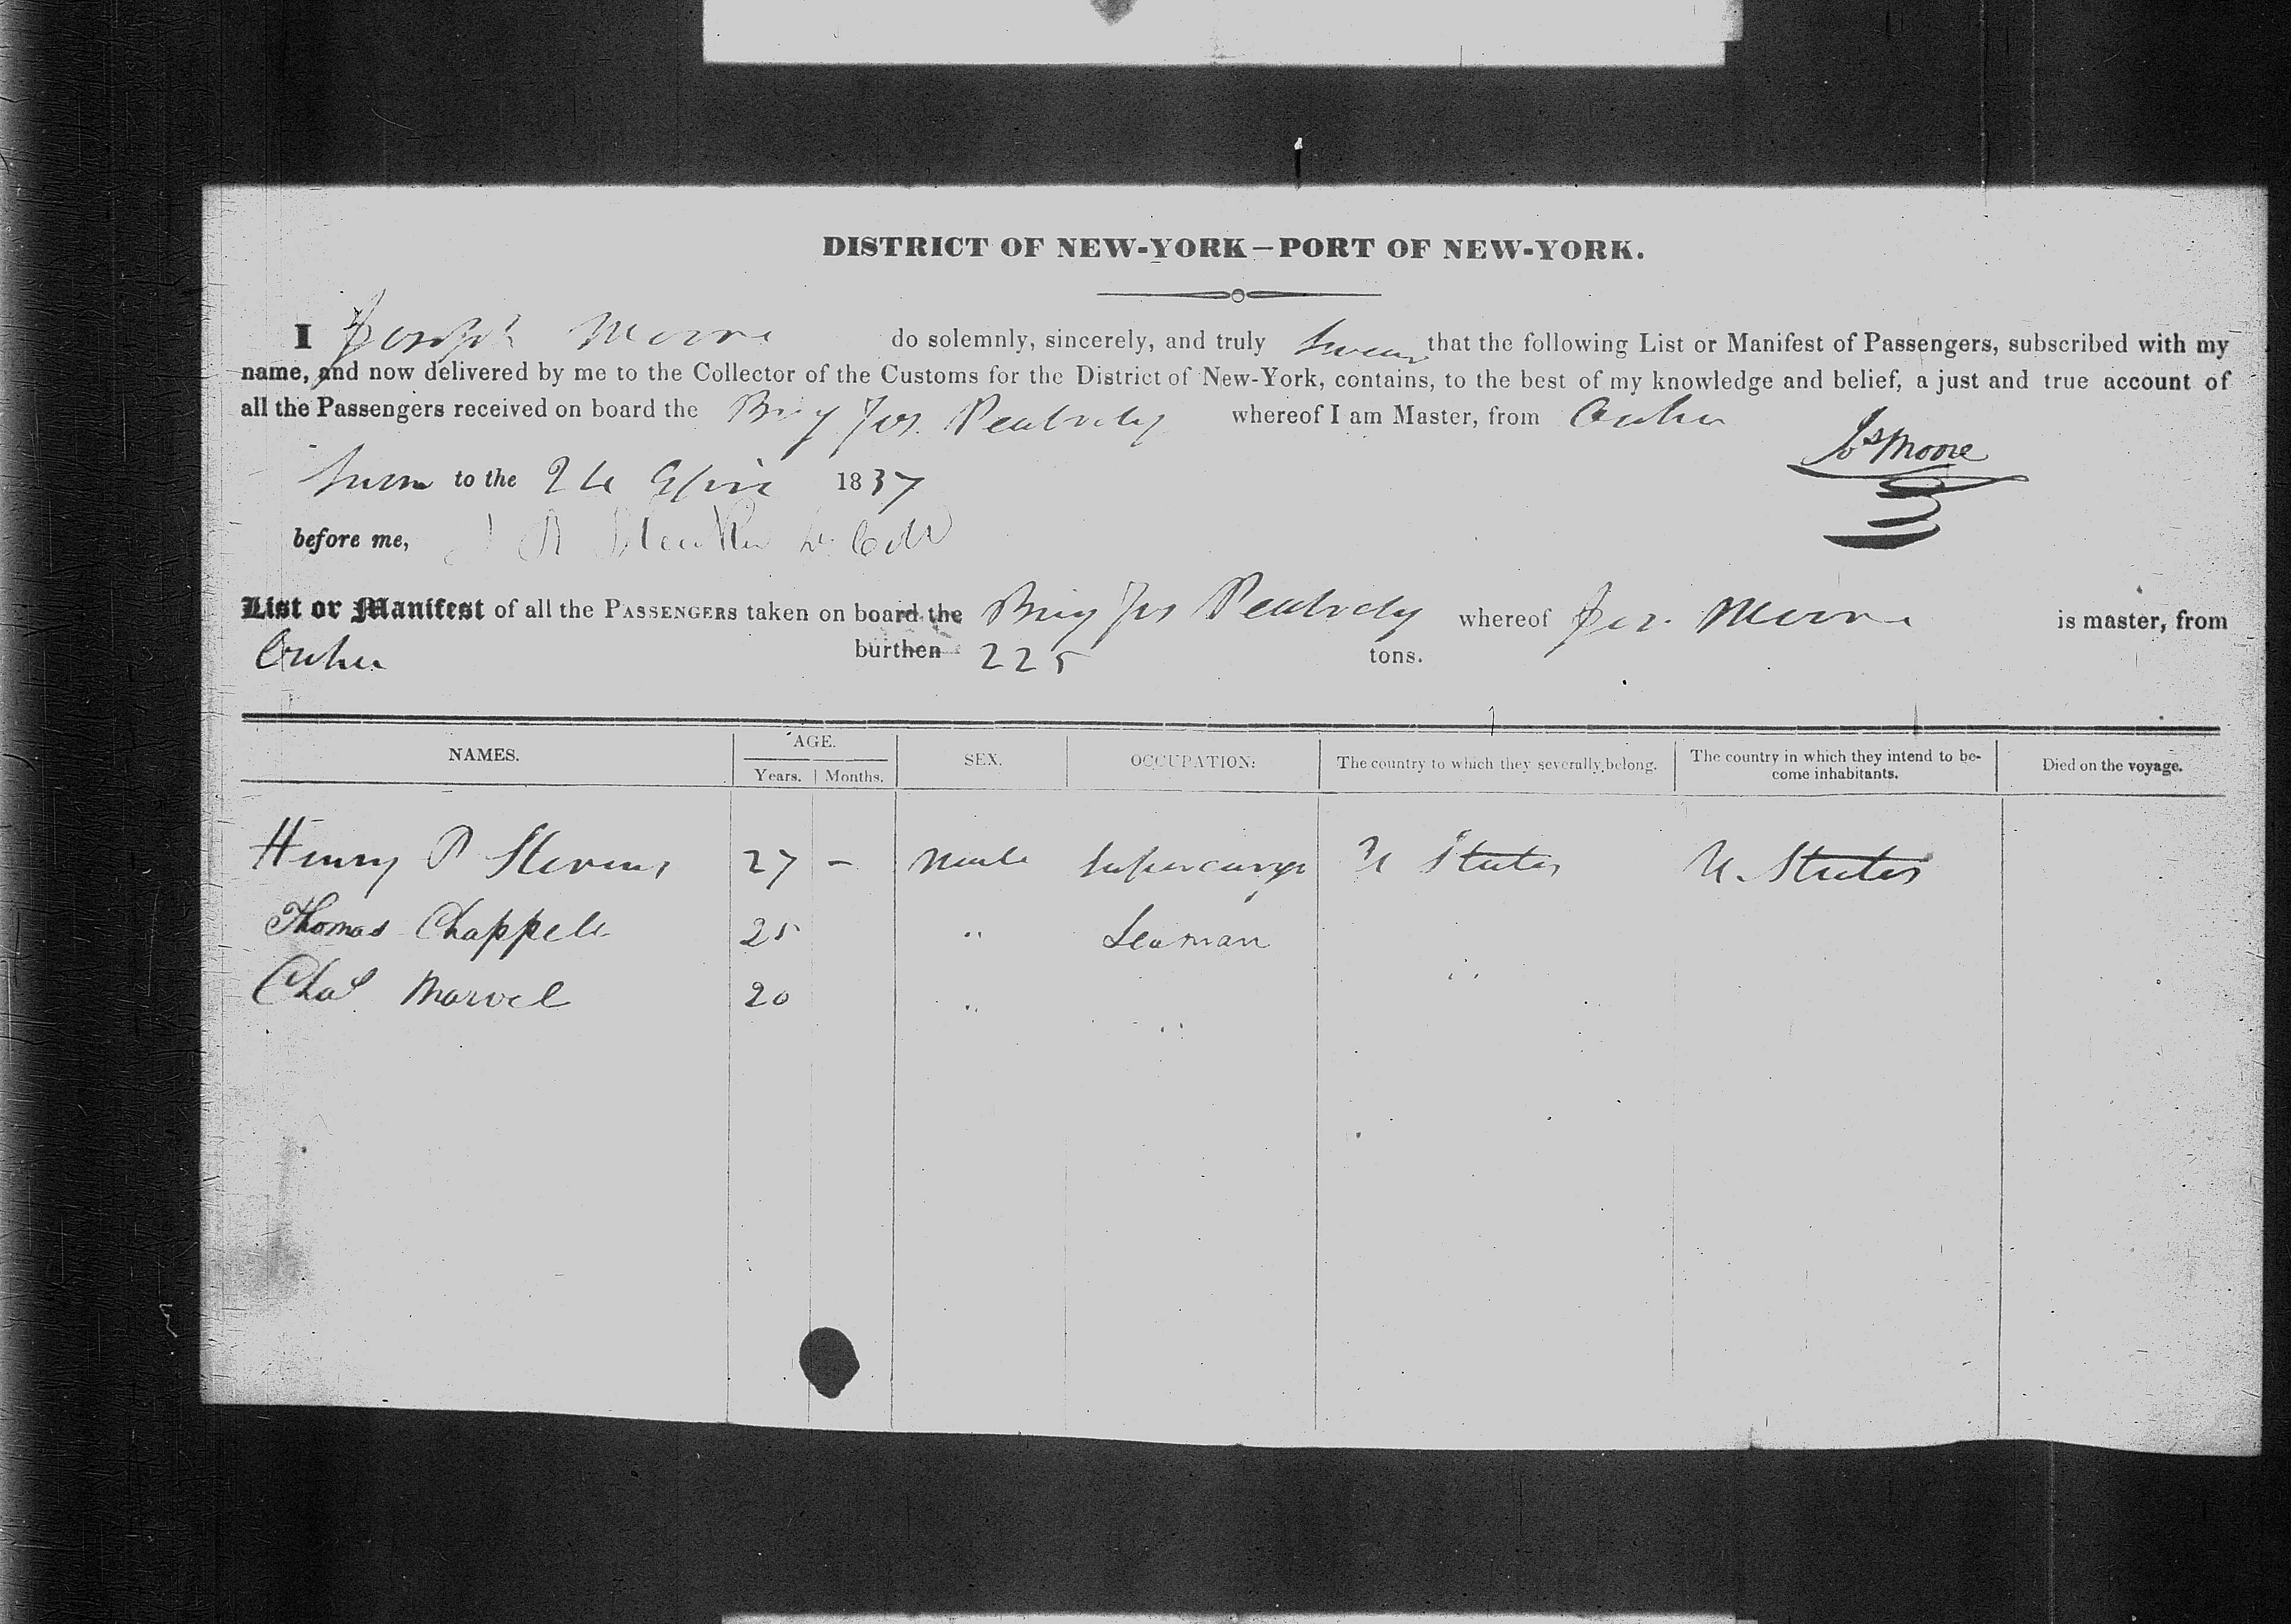 DISTRICT OF NEW-YORK—PORT OF NEW-YORK.
I Joseph Moore do solemnly, sincerely, and truly swear that the following List or Manifest of Passengers, subscribed with my
name, and now delivered by me to the Collector of the Customs for the District of New-York, contains, to the best of my knowledge and belief, a just and true account of
all the Passengers received on board the Brig Jos. Peabody whereof I am Master, from Oahu
Jos Moore
Sworn to the 26 April 1837
before me,
List or Manifest of all the PASSENGERS taken on board the Brig Jos Peabody whereof Jos. Moore is master, from
Oahu burthen 225 tons.
NAMES. AGE. SEX. OCCUPATION: The country to which they severally belong. The country in which they intend to be-
come inhabitants. Died on the voyage.
Years. Months.
Henry P Stevens 27 – Male Supercargo U States U. States
Thomas Chappell 25 " Seaman
Chas Marvel 20 " " "